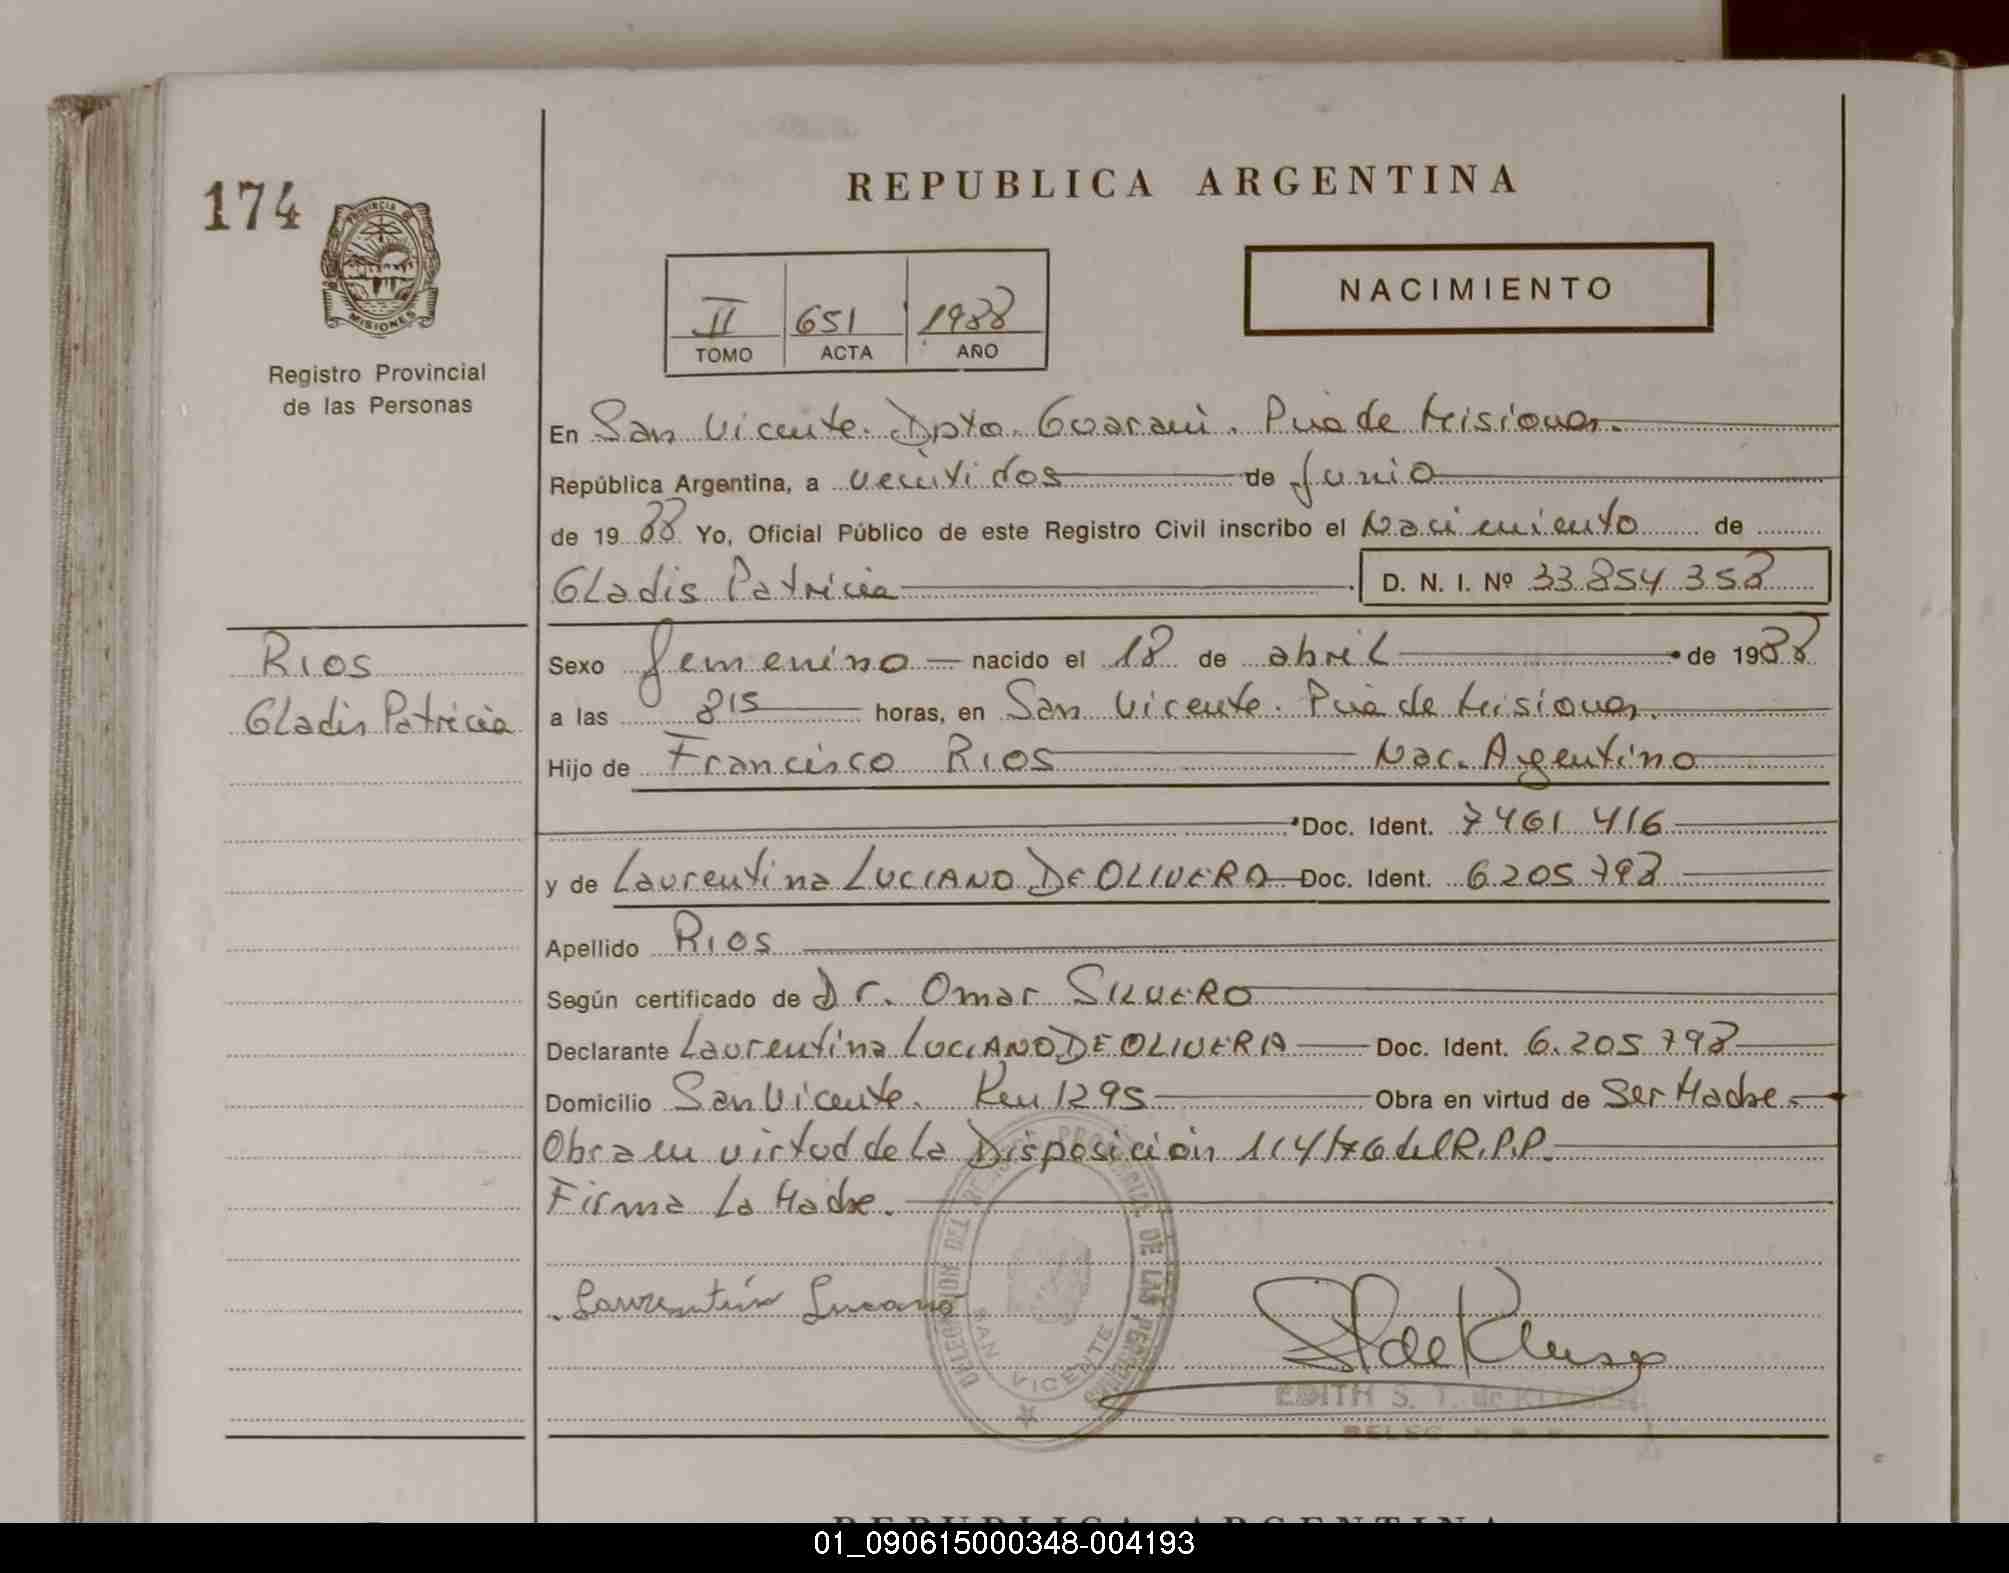 174
PROVINCIA DE
MISIONES
Registro Provincial
de las Personas
REPUBLICA ARGENTINA
II 651 1988
TOMO ACTA AÑO
NACIMIENTO
En San Vicente. Dpto. Guaraní. Pcia de Misiones.
República Argentina, a veintidos de Junio
de 1988 Yo, Oficial Público de este Registro Civil inscribo el Nacimiento de
Gladis Patricia D. N. I. Nº 33.854.358
Rios
Gladis Patricia
Sexo femenino nacido el 18 de abril de 1988
a las 8 15 horas, en San Vicente. Pcia de Misiones.
Hijo de Francisco RIOS Nac. Argentino
Doc. Ident. 7461416
y de Laurentina LUCIANO DE OLIVERA Doc. Ident. 6.205.798
Apellido RIOS
Según certificado de Dr. Omar SILVERO
Declarante Laurentina LUCIANO DE OLIVERIA Doc. Ident. 6.205.798
Domicilio San Vicente. Km 1295 Obra en virtud de Ser Madre.
Obra en virtud de la Disposición 114/76 del R.P.P.
Firma La Madre.
DELEGACION DEL REGISTRO PROVINCIAL DE LAS PERSONAS
SAN VICENTE
EDITH S. T. de
REPUBLICA ARGENTINA
01_090615000348-004193